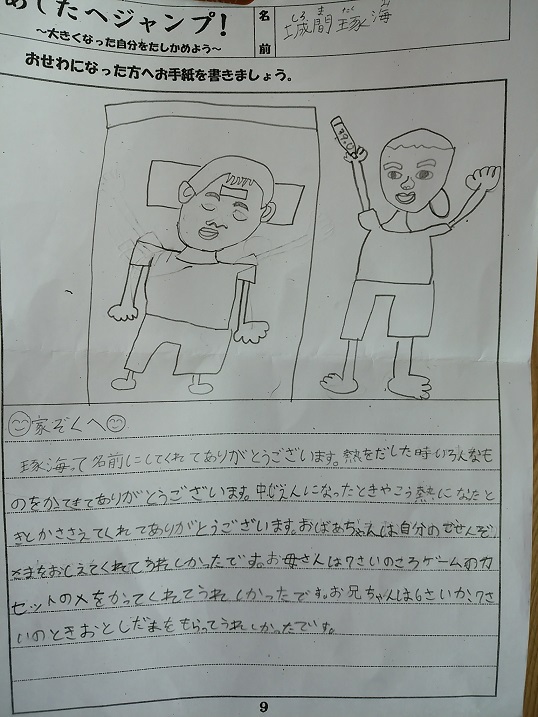 あしたへジャンプ!
~大きくなった自分をたしかめよう~
名前
しろ ま たく み
城間琢海
おせわになった方へお手紙を書きましょう。
39.0
家ぞくへ
琢海って名前にしてくれてありがとうございます。熱をだした時いろんなも
のをかってきてありがとうございます。中じえんになったときやこう熱になったと
きとかささえてくれてありがとうございます。おばあちゃんは自分のせんぞ
さまをおしえてくれてうれしかったです。お母さんは7さいのころゲームのカ
セットのメをかってくれてうれしかったです。お兄ちゃんは6さいか7さ
いのときおとしだまをもらってうれしかったです。
9